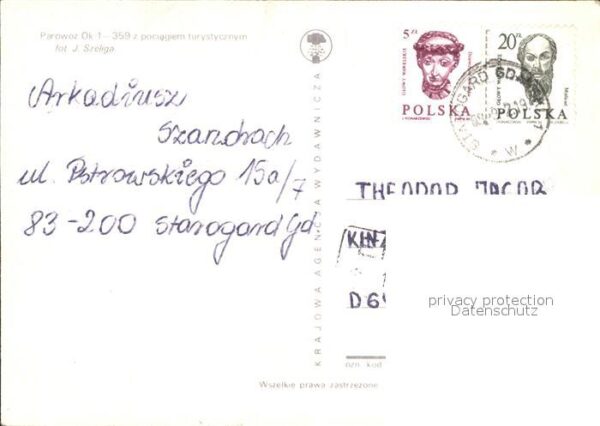 Parowóz Ok 1-359 z pociągiem turystycznym
fot J. Szeliga
Arkadiusz
Szandrach
ul. Pstrowskiego 15a/7
83-200 Starogard Gd
KRAJOWA AGENCJA WYDAWNICZA
5 zł
POLSKA
20 zł
POLSKA
THEODOR JACOB
KINZ
D 6
ozn. kod
Wszelkie prawa zastrzeżone
privacy protection
Datenschutz